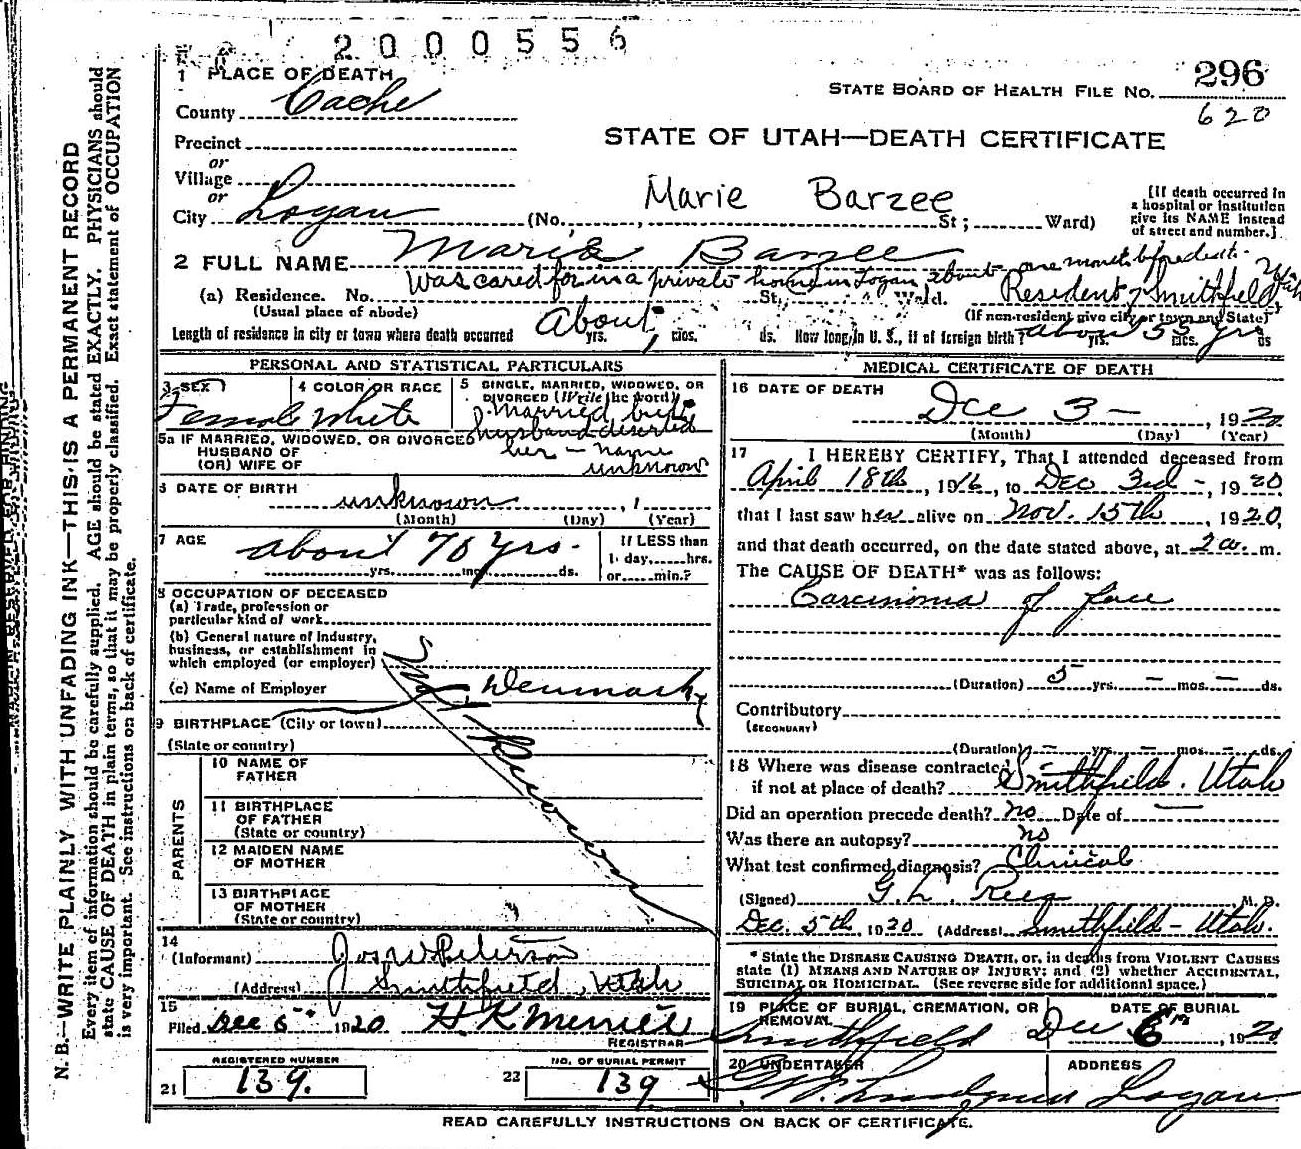 2000556
1 PLACE OF DEATH
County Cache
STATE BOARD OF HEALTH FILE NO. 296
620
STATE OF UTAH—DEATH CERTIFICATE
Precinct
or
Village
or
City Logan (No., St; Ward)
Marie Barzee
[If death occurred in
a hospital or institution
give its NAME instead
of street and number.]
2 FULL NAME Marie Barzee
Was cared for in a private home in Logan about one month before death.
(a) Residence. No. St., Ward. Resident of Smithfield, Utah
(Usual place of abode) (If non-resident give city or town and State)
Length of residence in city or town where death occurred About yrs. mos. ds. How long in U. S., if of foreign birth? about 55 yrs yrs. mos. ds
PERSONAL AND STATISTICAL PARTICULARS
3 SEX Female
4 COLOR OR RACE White
5 SINGLE, MARRIED, WIDOWED, OR
DIVORCED (Write the word)
Married but
husband deserted
her - name
unknown
5a IF MARRIED, WIDOWED, OR DIVORCED
HUSBAND OF
(OR) WIFE OF
6 DATE OF BIRTH unknown, 1
(Month) (Day) (Year)
7 AGE about 70 yrs.
yrs. mos. ds.
If LESS than
1 day, hrs.
or min.?
8 OCCUPATION OF DECEASED
(a) Trade, profession or
particular kind of work
(b) General nature of industry,
business, or establishment in
which employed (or employer)
(c) Name of Employer
Denmark
9 BIRTHPLACE (City or town)
(State or country)
PARENTS
10 NAME OF
FATHER
11 BIRTHPLACE
OF FATHER
(State or country)
12 MAIDEN NAME
OF MOTHER
13 BIRTHPLACE
OF MOTHER
(State or country)
14
(Informant) Jos W Peterson
(Address) Smithfield, Utah
15
Filed Dec 5th 1920 H K Merrill
REGISTRAR
REGISTERED NUMBER
21 139.
NO. OF BURIAL PERMIT
22 139
MEDICAL CERTIFICATE OF DEATH
16 DATE OF DEATH Dec 3 -, 1920
(Month) (Day) (Year)
17 I HEREBY CERTIFY, That I attended deceased from
April 18th, 1916, to Dec 3rd -, 1920
that I last saw her alive on Nov. 15th, 1920,
and that death occurred, on the date stated above, at 2 a. m.
The CAUSE OF DEATH* was as follows:
Carcinoma of face
(Duration) 5 yrs. — mos. — ds.
Contributory
(SECONDARY)
(Duration) — yrs. — mos. — ds.
18 Where was disease contracted
if not at place of death? Smithfield. Utah
Did an operation precede death? no Date of —
Was there an autopsy? no
What test confirmed diagnosis? Clinical
(Signed) G. L. Rees M. D.
Dec. 5th, 1920 (Address) Smithfield - Utah.
* State the DISEASE CAUSING DEATH, or, in deaths from VIOLENT CAUSES
state (1) MEANS AND NATURE OF INJURY; and (2) whether ACCIDENTAL,
SUICIDAL OR HOMICIDAL. (See reverse side for additional space.)
19 PLACE OF BURIAL, CREMATION, OR
REMOVAL
Smithfield
DATE OF BURIAL
Dec 6th, 1920
20 UNDERTAKER
G. W. Lindquist
ADDRESS
Logan
READ CAREFULLY INSTRUCTIONS ON BACK OF CERTIFICATE.
N. B.—WRITE PLAINLY WITH UNFADING INK—THIS IS A PERMANENT RECORD
Every item of information should be carefully supplied. AGE should be stated EXACTLY. PHYSICIANS should
state CAUSE OF DEATH in plain terms, so that it may be properly classified. Exact statement of OCCUPATION
is very important. See instructions on back of certificate.